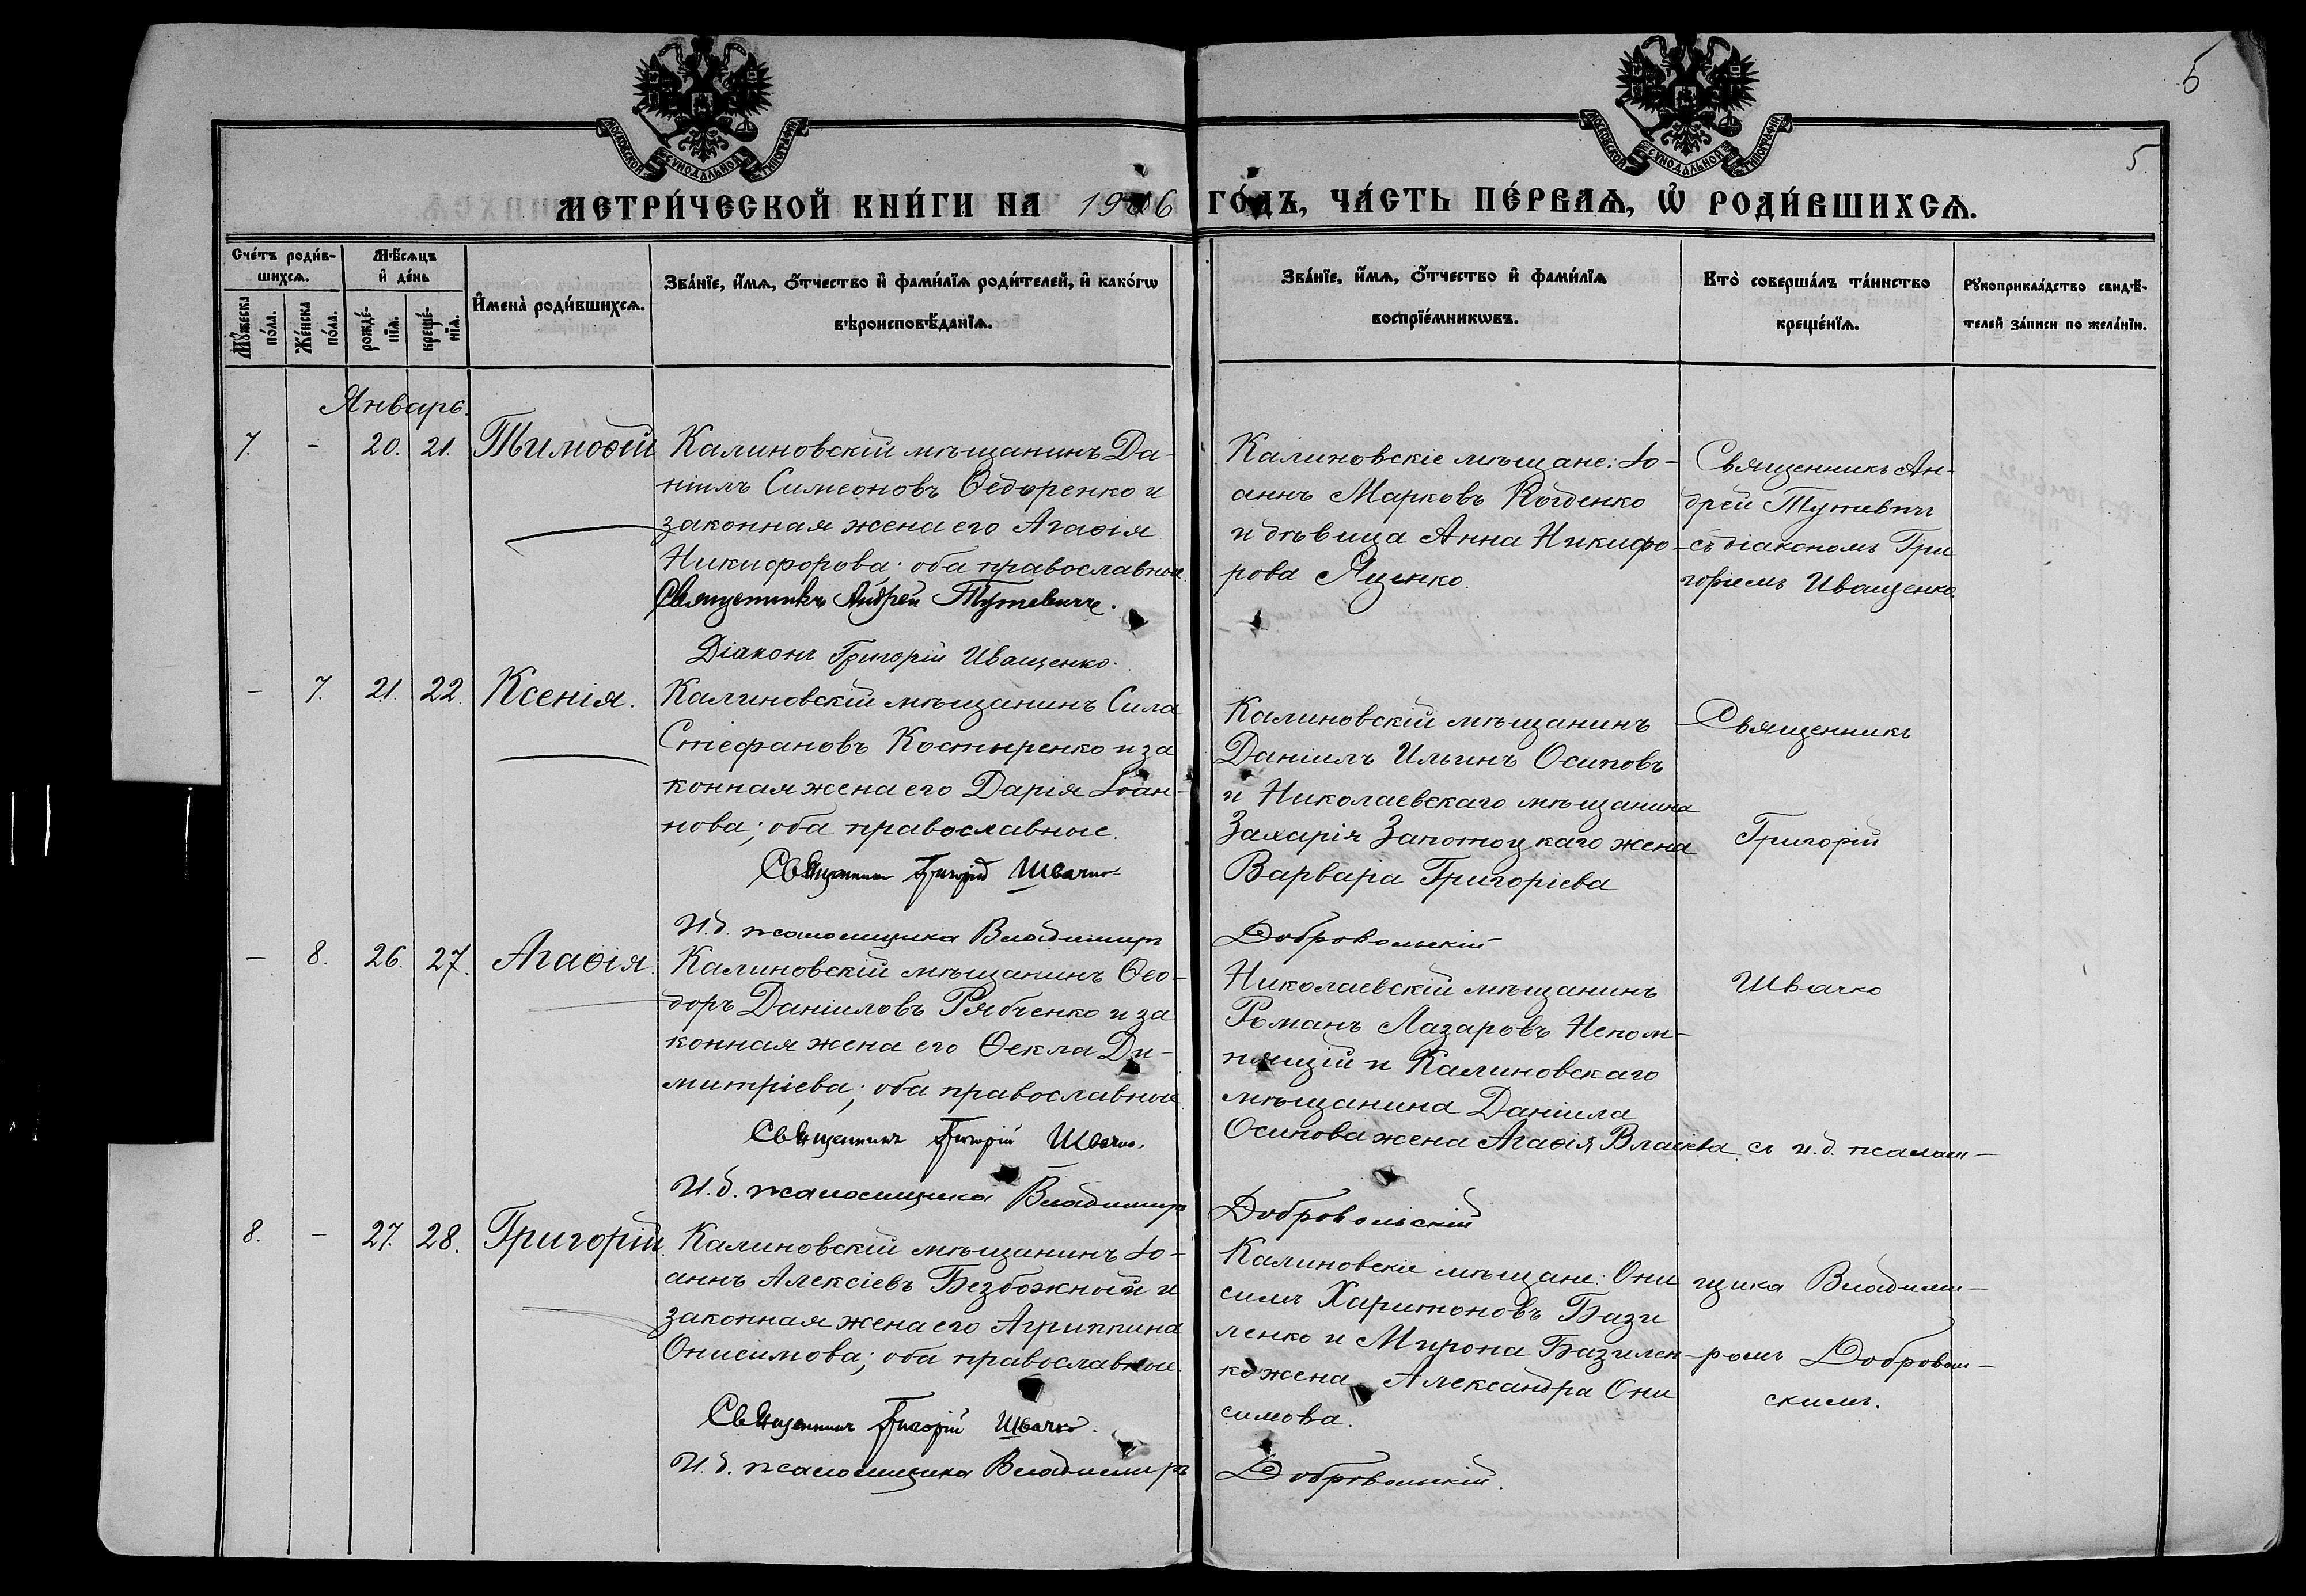 5
5
МОСКОВСКОЙ СУНОДАЛЬНОЙ ТИПОГРАФІИ
МОСКОВСКОЙ СУНОДАЛЬНОЙ ТИПОГРАФІИ
МЕТРИ́ЧЕСКОЙ КНИ́ГИ НА 1906 ГО́ДЪ, ЧА́СТЬ ПЕ́РВАѦ, Ѡ РОДИ́ВШИХСѦ.
Сче́тъ роди́в-
шихсѧ.
Мѣ́сѧцъ
и҆ де́нь
Мꙋ́жеска по́ла.
Же́нска по́ла.
рожде́-нїѧ.
креще́-нїѧ.
И҆мена̀ роди́вшихсѧ.
Зва́нїе, и҆́мѧ, ѻ҆́тчество и҆ фами́лїѧ роди́телей, и҆ како́гѡ
вѣроисповѣ́данїѧ.
Зва́нїе, и҆́мѧ, ѻ҆́тчество и҆ фами́лїѧ
воспрїе́мникѡвъ.
Кто̀ соверша́лъ та́инство
креще́нїѧ.
Рꙋкоприкла́дство свидѣ́-
телей за́писи по жела́нїю.
Январь.
7. - 20. 21. Тимоѳій
Калиновскій мѣщанинъ Да-
ніилъ Симеоновъ Ѳедоренко и
законная жена его Агаѳія
Никифорова; оба православные.
Священникъ Андрей Тутевичъ.
Діаконъ Григорій Иващенко.
Калиновскіе мѣщане: Іо-
аннъ Марковъ
и дѣвица Анна Никифо-
рова Яценко.
Священникъ Ан-
дрей Тутевичъ
съ діакономъ Гри
горіемъ Иващенко.
- 7. 21. 22. Ксенія.
Калиновскій мѣщанинъ Сила
Стефановъ Костыренко и за
конная жена его Дарія Іоан-
нова; оба православные.
Священникъ Григорій Швачко.
И.д. псаломщика Владимиръ Добровольскій
Калиновскій мѣщанинъ
Даніилъ Ильинъ Осиповъ
и Николаевскаго мѣщанина
Захарія Запотоцкаго жена
Варвара Григоріева
Священникъ
Григорій
- 8. 26. 27. Агаѳія.
Калиновскій мѣщанинъ Ѳео-
доръ Даніиловъ Рябченко и за
конная жена его Ѳекла Ди-
митріева; оба православные.
Священникъ Григорій Швачко.
И.д. псаломщика Владимиръ Добровольскій
Николаевскій мѣщанинъ
Романъ Лазаровъ Непом-
нящій и Калиновскаго
мѣщанина Даніила
Осипова жена Агаѳія Власіева
Швачко
съ и.д. псалом-
8. - 27. 28. Григорій.
Калиновскій мѣщанинъ Іо-
аннъ Алексіевъ Безбожный и
законная жена его Агриппина
Онисимова; оба православные.
Священникъ Григорій Швачко.
И.д. псаломщика Владимиръ Добровольскій.
Калиновскіе мѣщане: Они
симъ Харитоновъ Бази
ленко и Мирона Базилен-
ко жена Александра Они
симова.
щика Владими-
ромъ Доброволь-
скимъ.